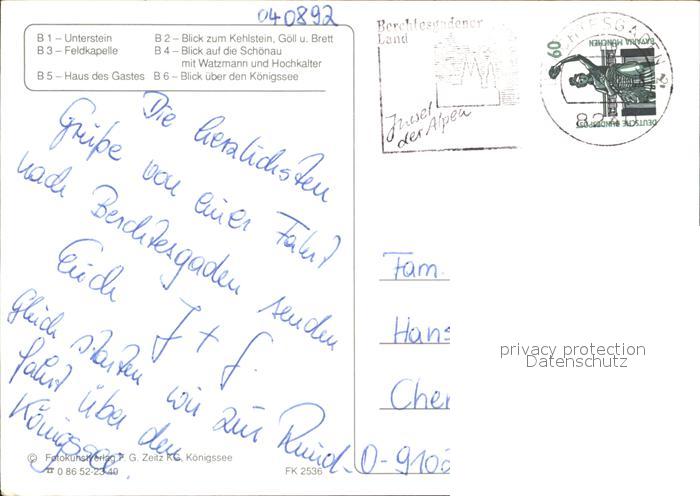 040892
B 1 – Unterstein
B 2 – Blick zum Kehlstein, Göll u. Brett
B 3 – Feldkapelle
B 4 – Blick auf die Schönau
mit Watzmann und Hochkalter
B 5 – Haus des Gastes
B 6 – Blick über den Königssee
Berchtesgadener
Land
Insel
der Alpen
60
BAYARIA MÜNCHEN
DEUTSCHE BUNDESPOST
Die herzlichsten
Grüße von einer Fahrt
nach Berchtesgaden senden
Euch J + G.
Gleich starten wir zur Rund-
fahrt über den
Königssee.
Fam.
Hans
Cher
O-9100
privacy protection
Datenschutz
© Fotokunstverlag F. G. Zeitz KG, Königssee
☎ 0 86 52-23 40
FK 2536